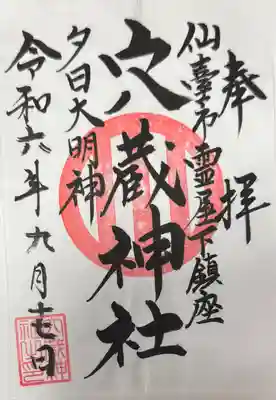 奉拝
仙臺市霊屋下鎮座
穴蔵神社
夕日大明神
令和六年九月十七日